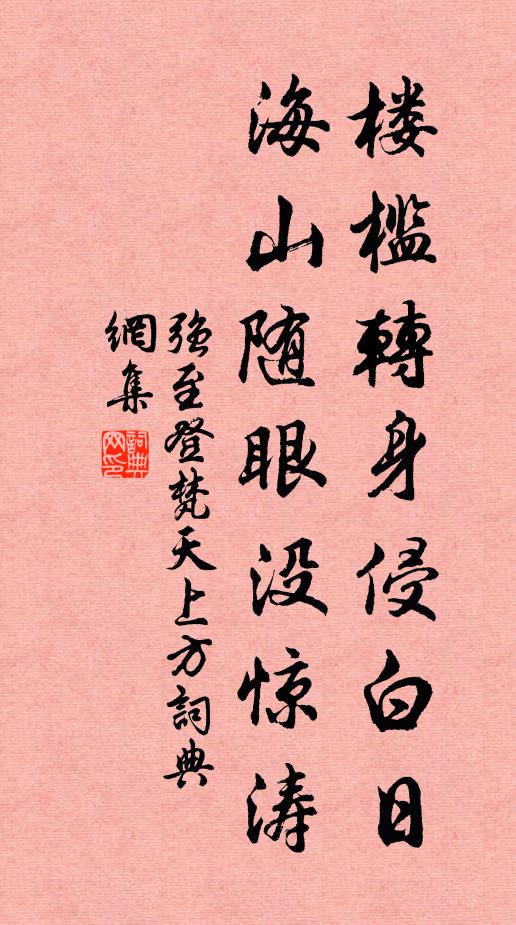 楼槛轉身侵白日
海山随眼没惊涛
强至登梵天上方詞典
網集
詞典网印